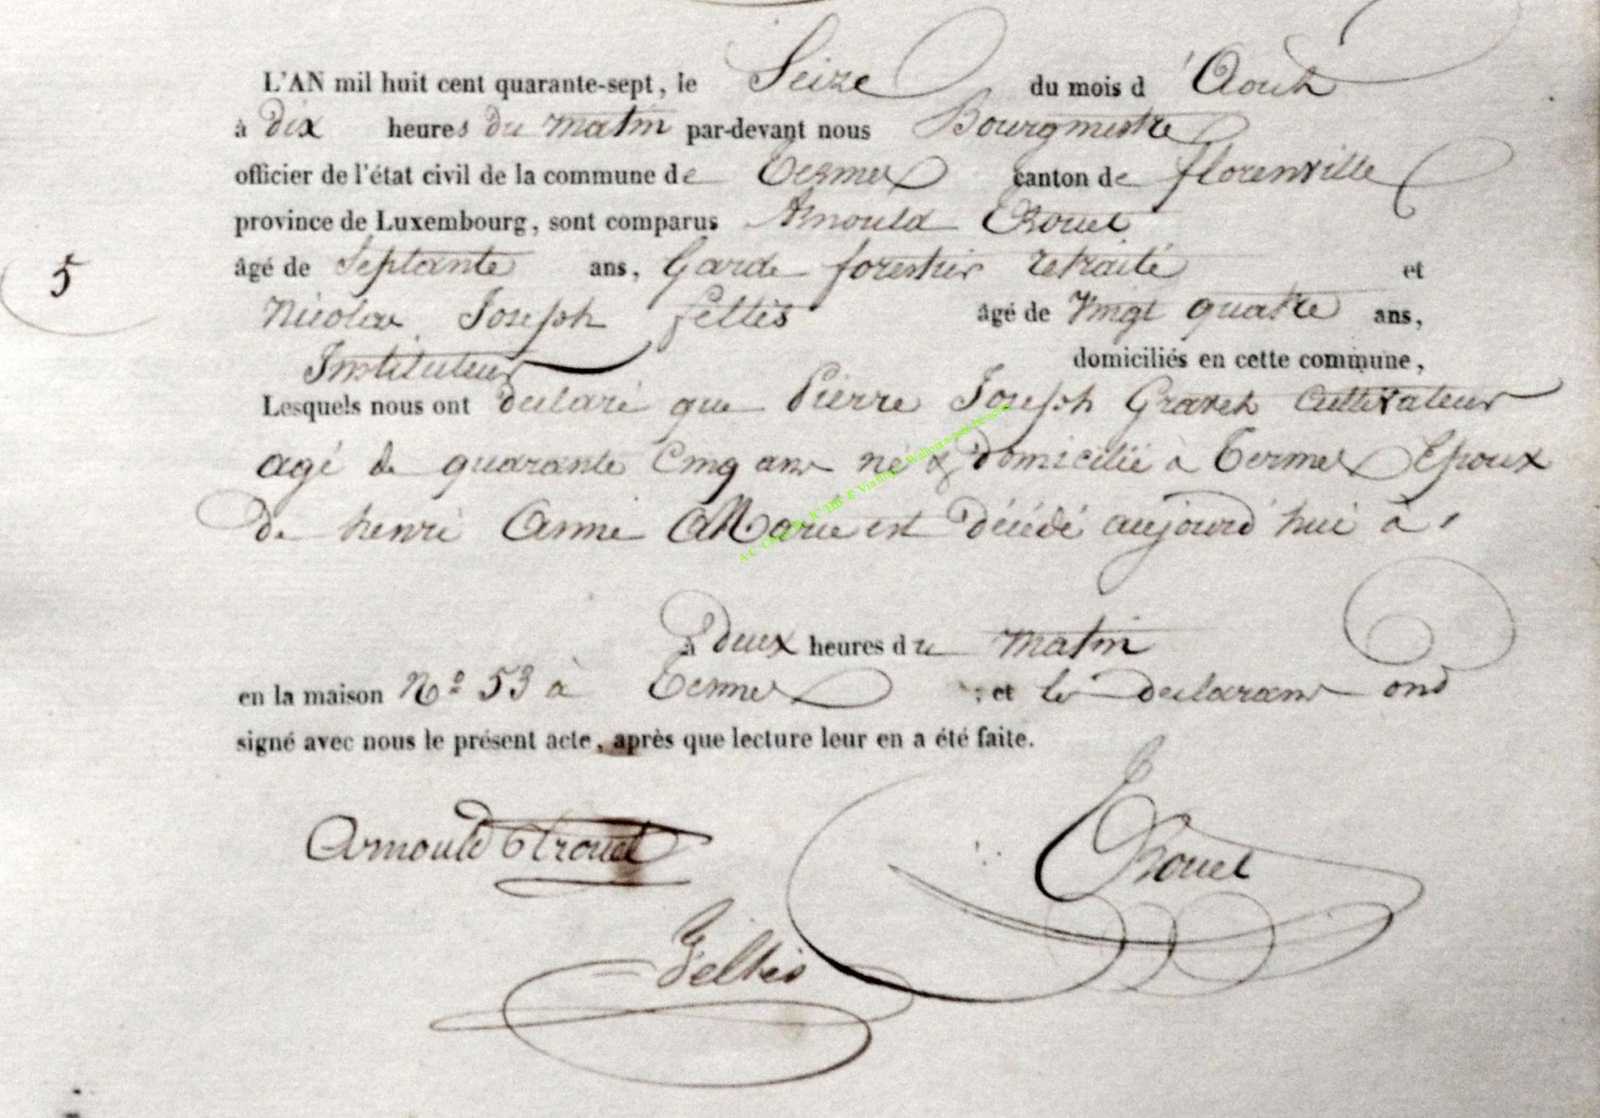 L'AN mil huit cent quarante-sept, le Seize du mois d'Aout
à dix heures du matin par-devant nous Bourgmestre
officier de l'état civil de la commune de Termes canton de florenville
province de Luxembourg, sont comparus Arnould Trouet
5 âgé de Septante ans, Garde forestier retraité et
Nicolas Joseph feltès âgé de Vingt quatre ans,
Instituteur domiciliés en cette commune,
Lesquels nous ont declaré que Pierre Joseph Graneh Cultivateur
agé de quarante Cinq ans né & domicilié à Termes Epoux
de henri Anne Marie est décédé aujourd'hui à
à deux heures du matin
en la maison No 53 à Termes ; et les declarans ond
signé avec nous le présent acte, après que lecture leur en a été faite.
Arnould Trouet
Trouet
Feltès